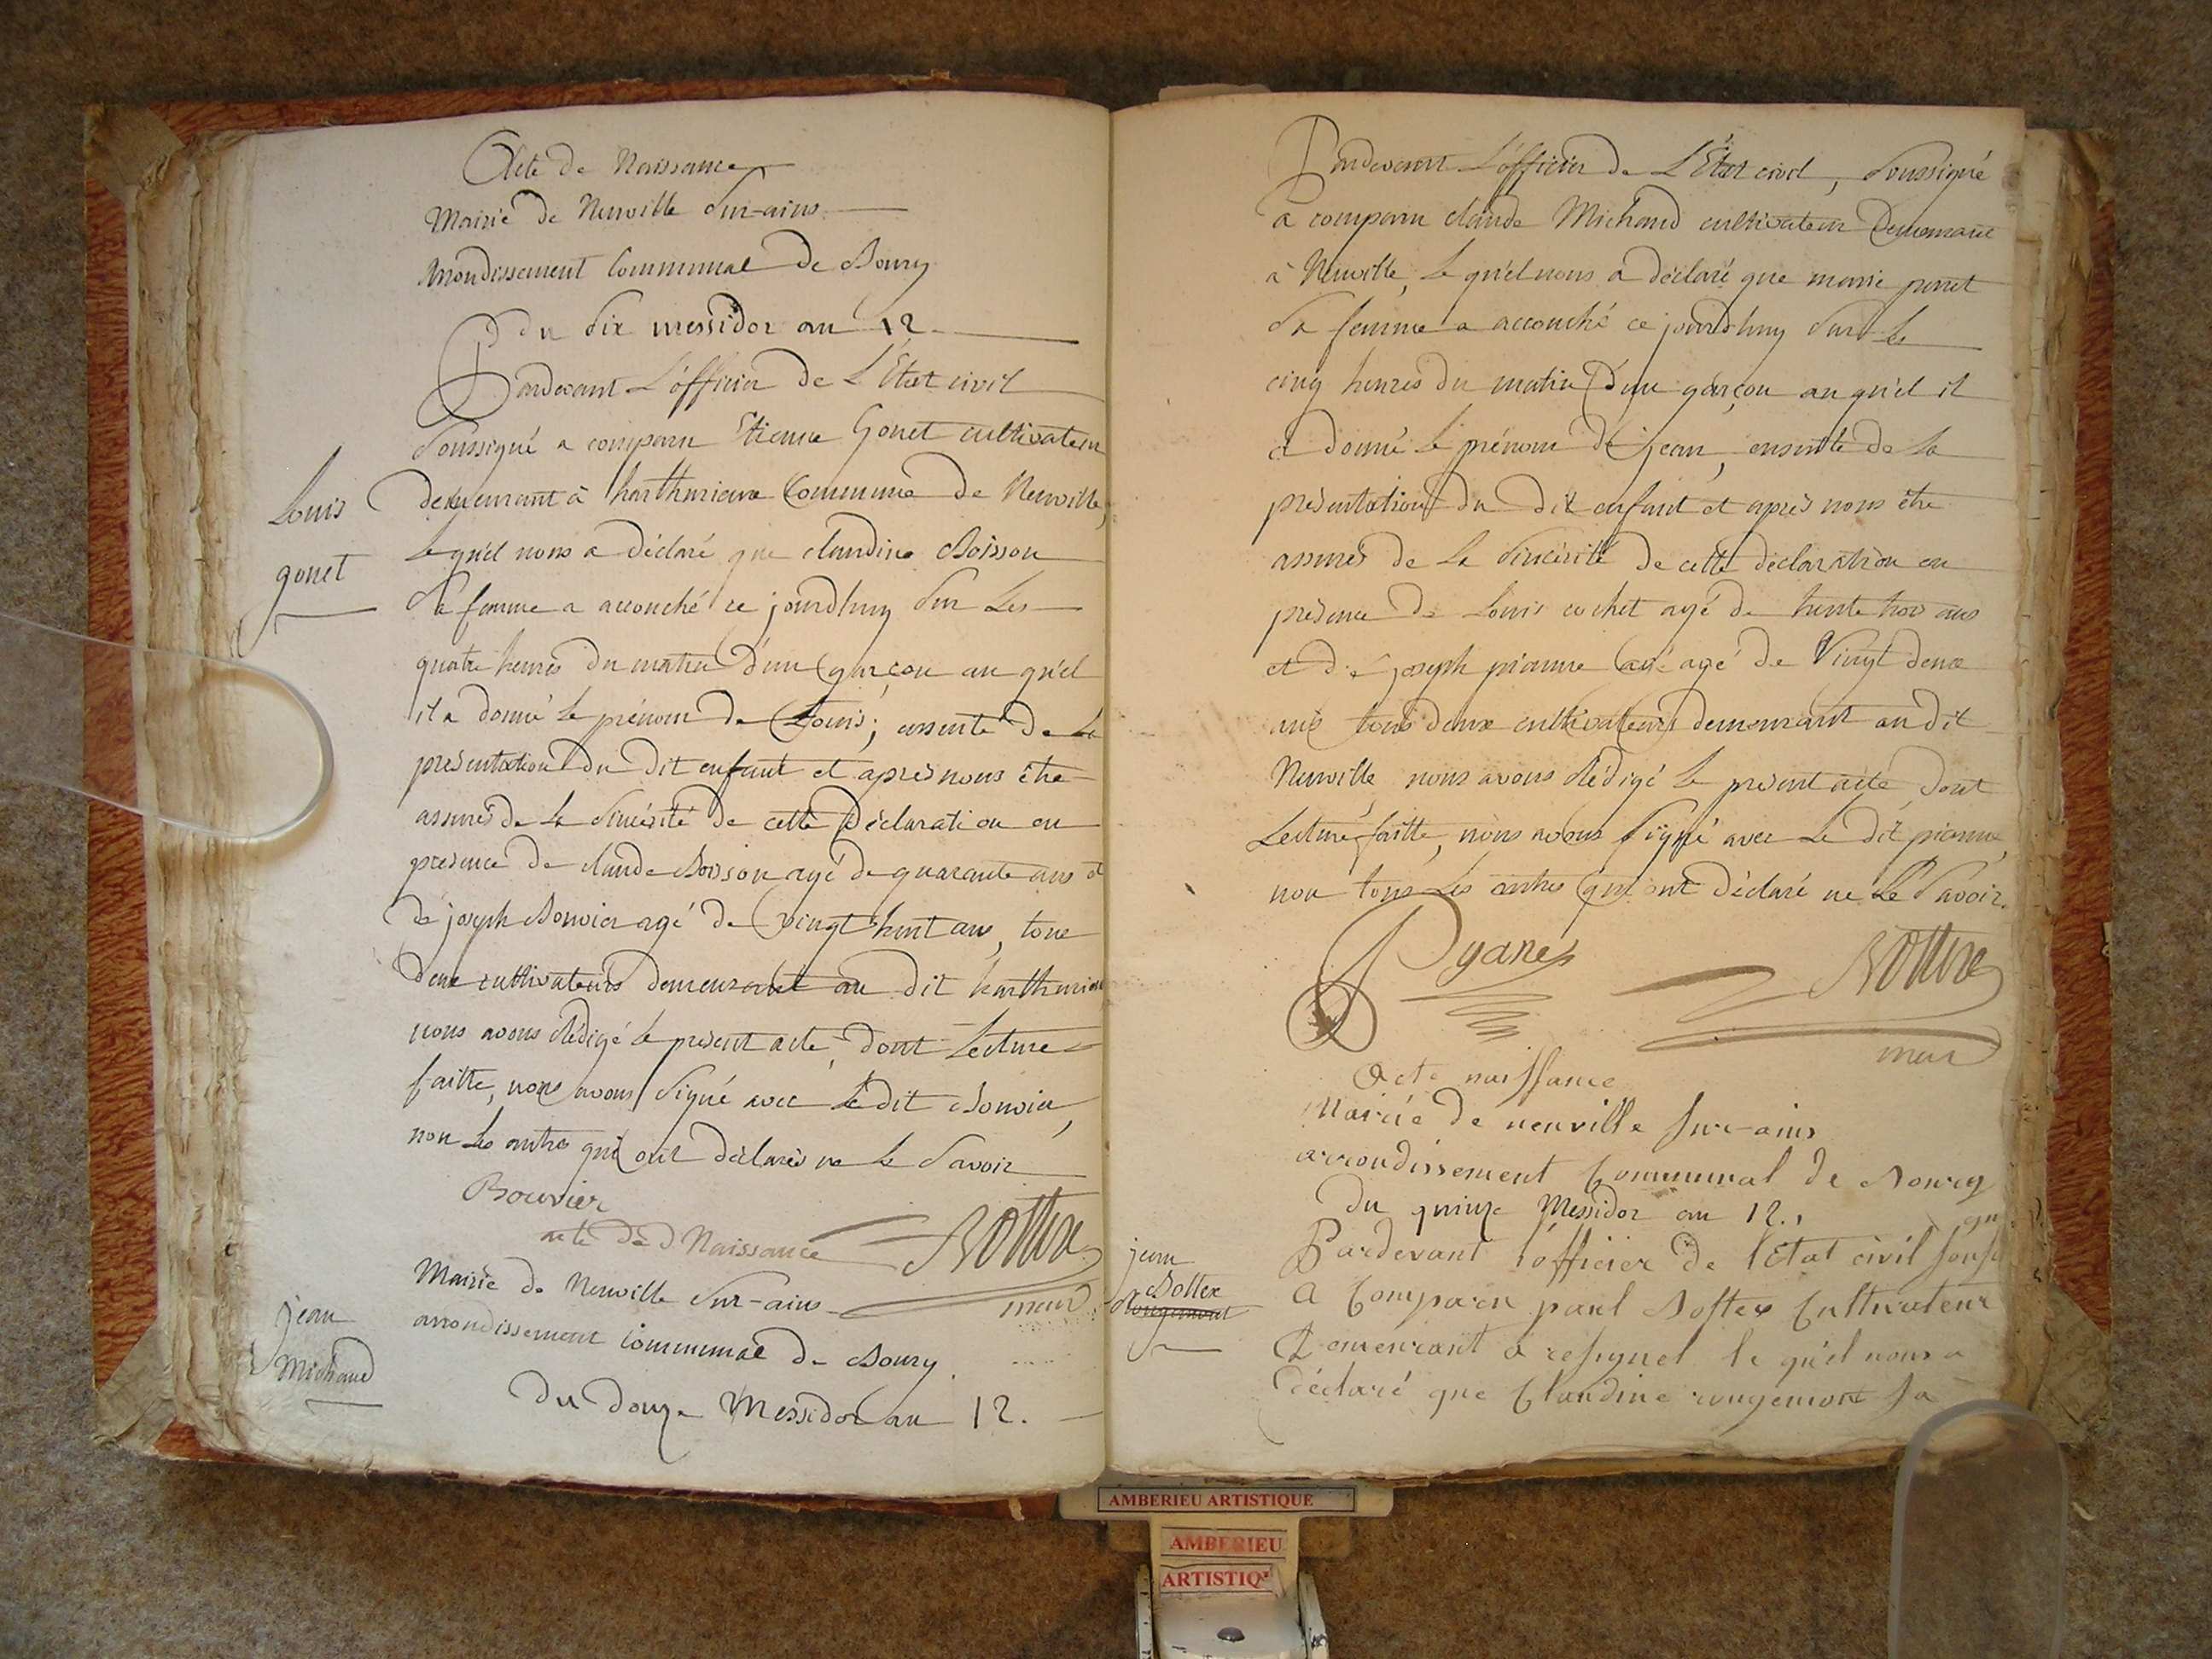 Acte de Naissance
Mairie de Neuville Sur-ains
arrondissement Communal de Bourg
du dix messidor an 12
Pardevant L'officier de L'État civil
Soussigné a comparu Etienne Gonet cultivateur
Louis
gonet
demeurant à Commune de Neuville,
Le qu'el nous a déclaré que claudine Boisson
Sa femme a accouché ce jourdhuy Sur Les
quatre heures du matin d'un garçon au qu'el
il a donné Le prénom de Louis; de La
présentation du dit enfant et après nous être
assurés de La Sincérité de cette Déclaration en
présence de claude Boisson agé de quarante ans et
de joseph Bouvier agé de vingt huit ans, tous
deux cultivateurs demeurant au dit
nous avons Rédigé Le présent acte, dont Lecture
faitte, nous avons Signé avec Le dit Bouvier,
non Les autres qui ont déclarés ne Le Savoir
Bouvier
acte de Naissance
maire
Mairie de Neuville Sur-ains
jean
Michaud
arrondissement communal de Bourg.
Du Douze Messidor an 12.
Pardevant L'officier de L'État civil, Soussigné
a comparu claude Michaud cultivateur Demeurant
à Neuville, Le qu'el nous a déclaré que marie perret
Sa femme a accouché ce jourdhuy Sur Les
cinq heures du matin d'un garçon au qu'el il
a donné Le prénom de jean, ensemble de La
présentation du dit enfant et après nous être
assurés de La Sincérité de cette déclaration en
présence de Louis cochet agé de trente trois ans
et de joseph agé de Vingt deux
ans tous deux cultivateurs demeurant au dit
Neuville, nous avons Rédigé Le présent acte, dont
Lecture faitte, nous avons Signé avec Le dit
non tous Les autres qui ont déclaré ne Le Savoir.
maire
Acte naissance
Mairie de neuville sur-ains
arrondissement Communal de Bourg
du quinze Messidor an 12.
jean
Boltex
Rougemont
Pardevant l'officier de l'État civil
a Comparu paul Boltex Cultivateur
Demeurant à resignel le qu'el nous a
déclaré que Claudine rougemont sa
AMBERIEU ARTISTIQUE
AMBERIEU
ARTISTIQ